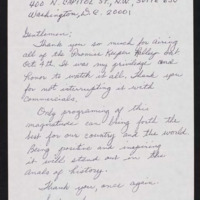 400 N. CAPITOL ST., N.W. SUITE 650
Washington, D.C. 20001
Gentlemen:
Thank you so much for airing
all of the Promise Keepers Rally Sat
Oct 4th. It was my privilege and
honor to watch it all. Thank you
for not interrupting it with
commercials.
Only programing of this
magnitude can bring forth the
best for our country and the world.
Being positive and inspiring
it will stand out in the
anals of history.
Thank you, once again